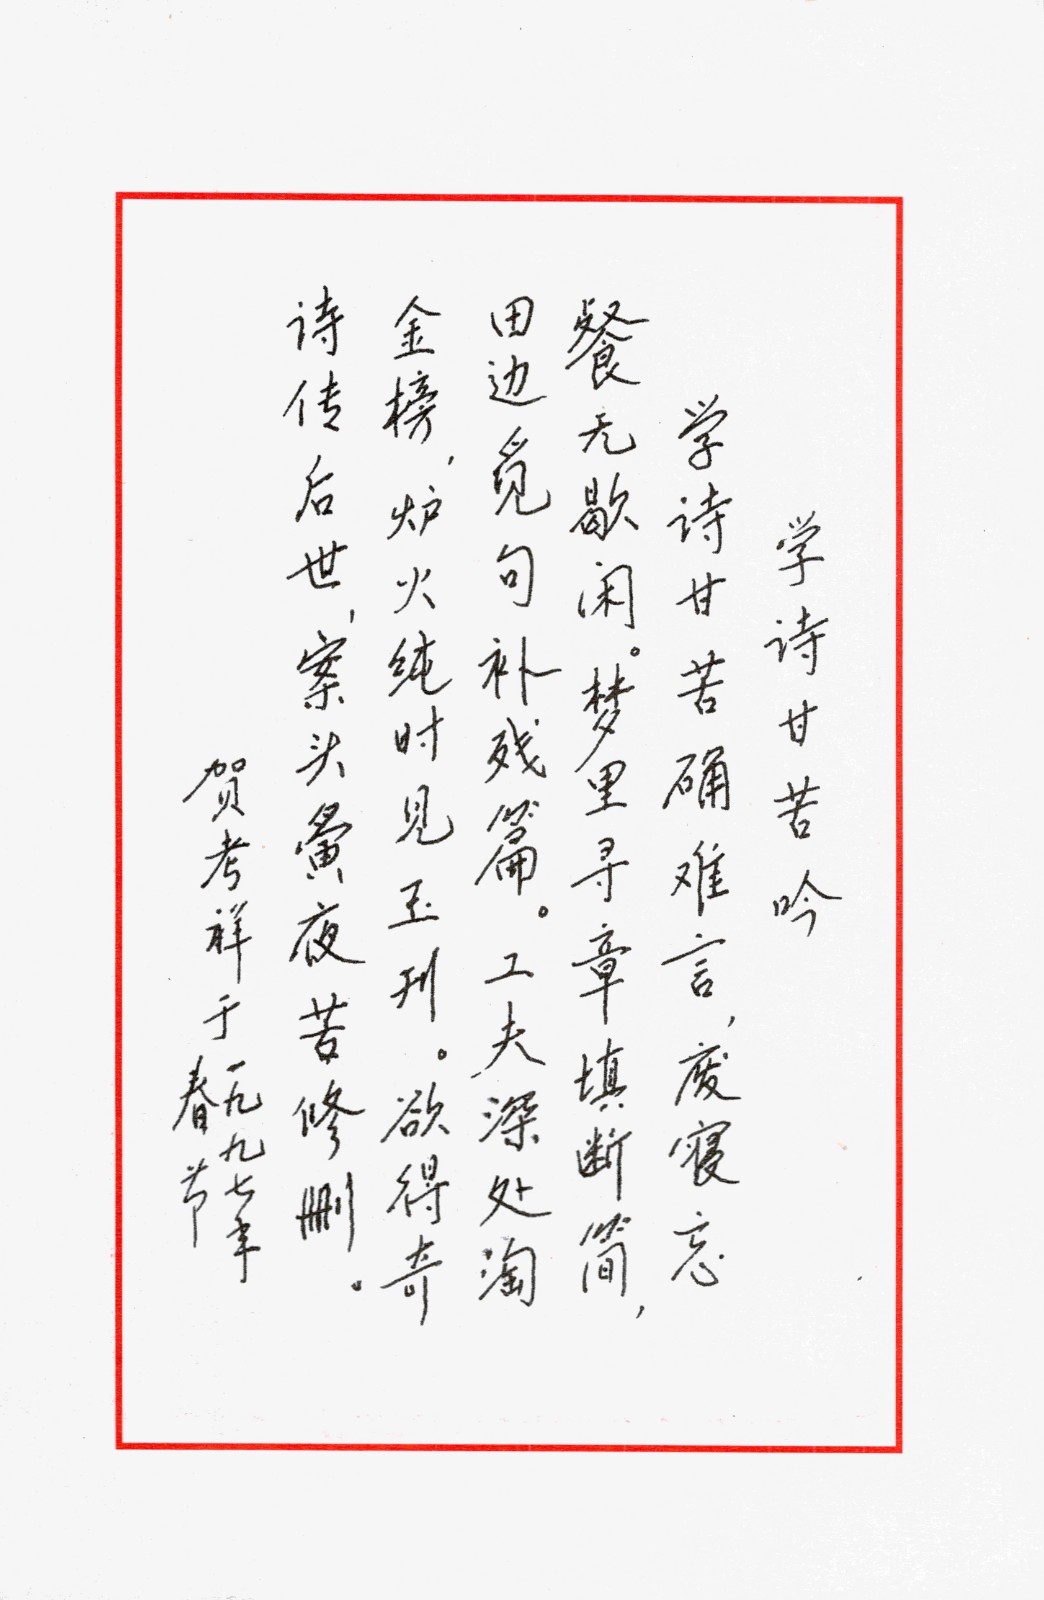 学诗甘苦吟
学诗甘苦确难言，废寝忘
餐无歇闲。梦里寻章填断简，
田边觅句补残篇。工夫深处淘
金榜，炉火纯时见玉刊。欲得奇
诗传后世，案头夤夜苦修删。
贺考祥于一九九七年
春节